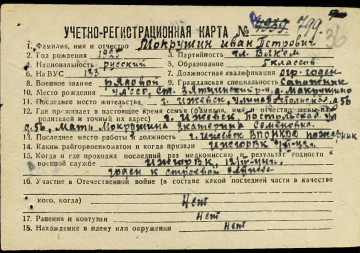 УЧЕТНО-РЕГИСТРАЦИОННАЯ КАРТА № 799.
36
1. Фамилия, имя и отчество Мокрушин Иван Петрович
2. Год рождения 1925 3. Партийность чл. ВЛКСМ
4. Национальность русский 5. Образование 5 классов
6. На ВУС 133 7. Должностная квалификация огр. годен
8. Военное звание рядовой 9. Гражданская специальность Сапожник
10. Место рождения УАССР, д. Мокрушино
11. Последнее место жительства г. Ижевск, 56
12. Где проживает в настоящее время семья (фамилия, имя и отчество жены
родителей и точный их адрес) г. Ижевск,
56, Мать Мокрушина Екатерина Семеновна
13. Последнее место работы и должность г. Ижевск пожарник
14. Каким райгорвоенкоматом и когда призван ИжГОРВК
15. Когда и где проходил последний раз медкомиссию и результат годности к
военной службе ИжГОРВК,
годен к строевой службе
16. Участие в Отечественной войне (в составе какой последней части в качестве
кого, когда) Нет
17. Ранения и контузии Нет
18. Нахождение в плену или окружении Нет